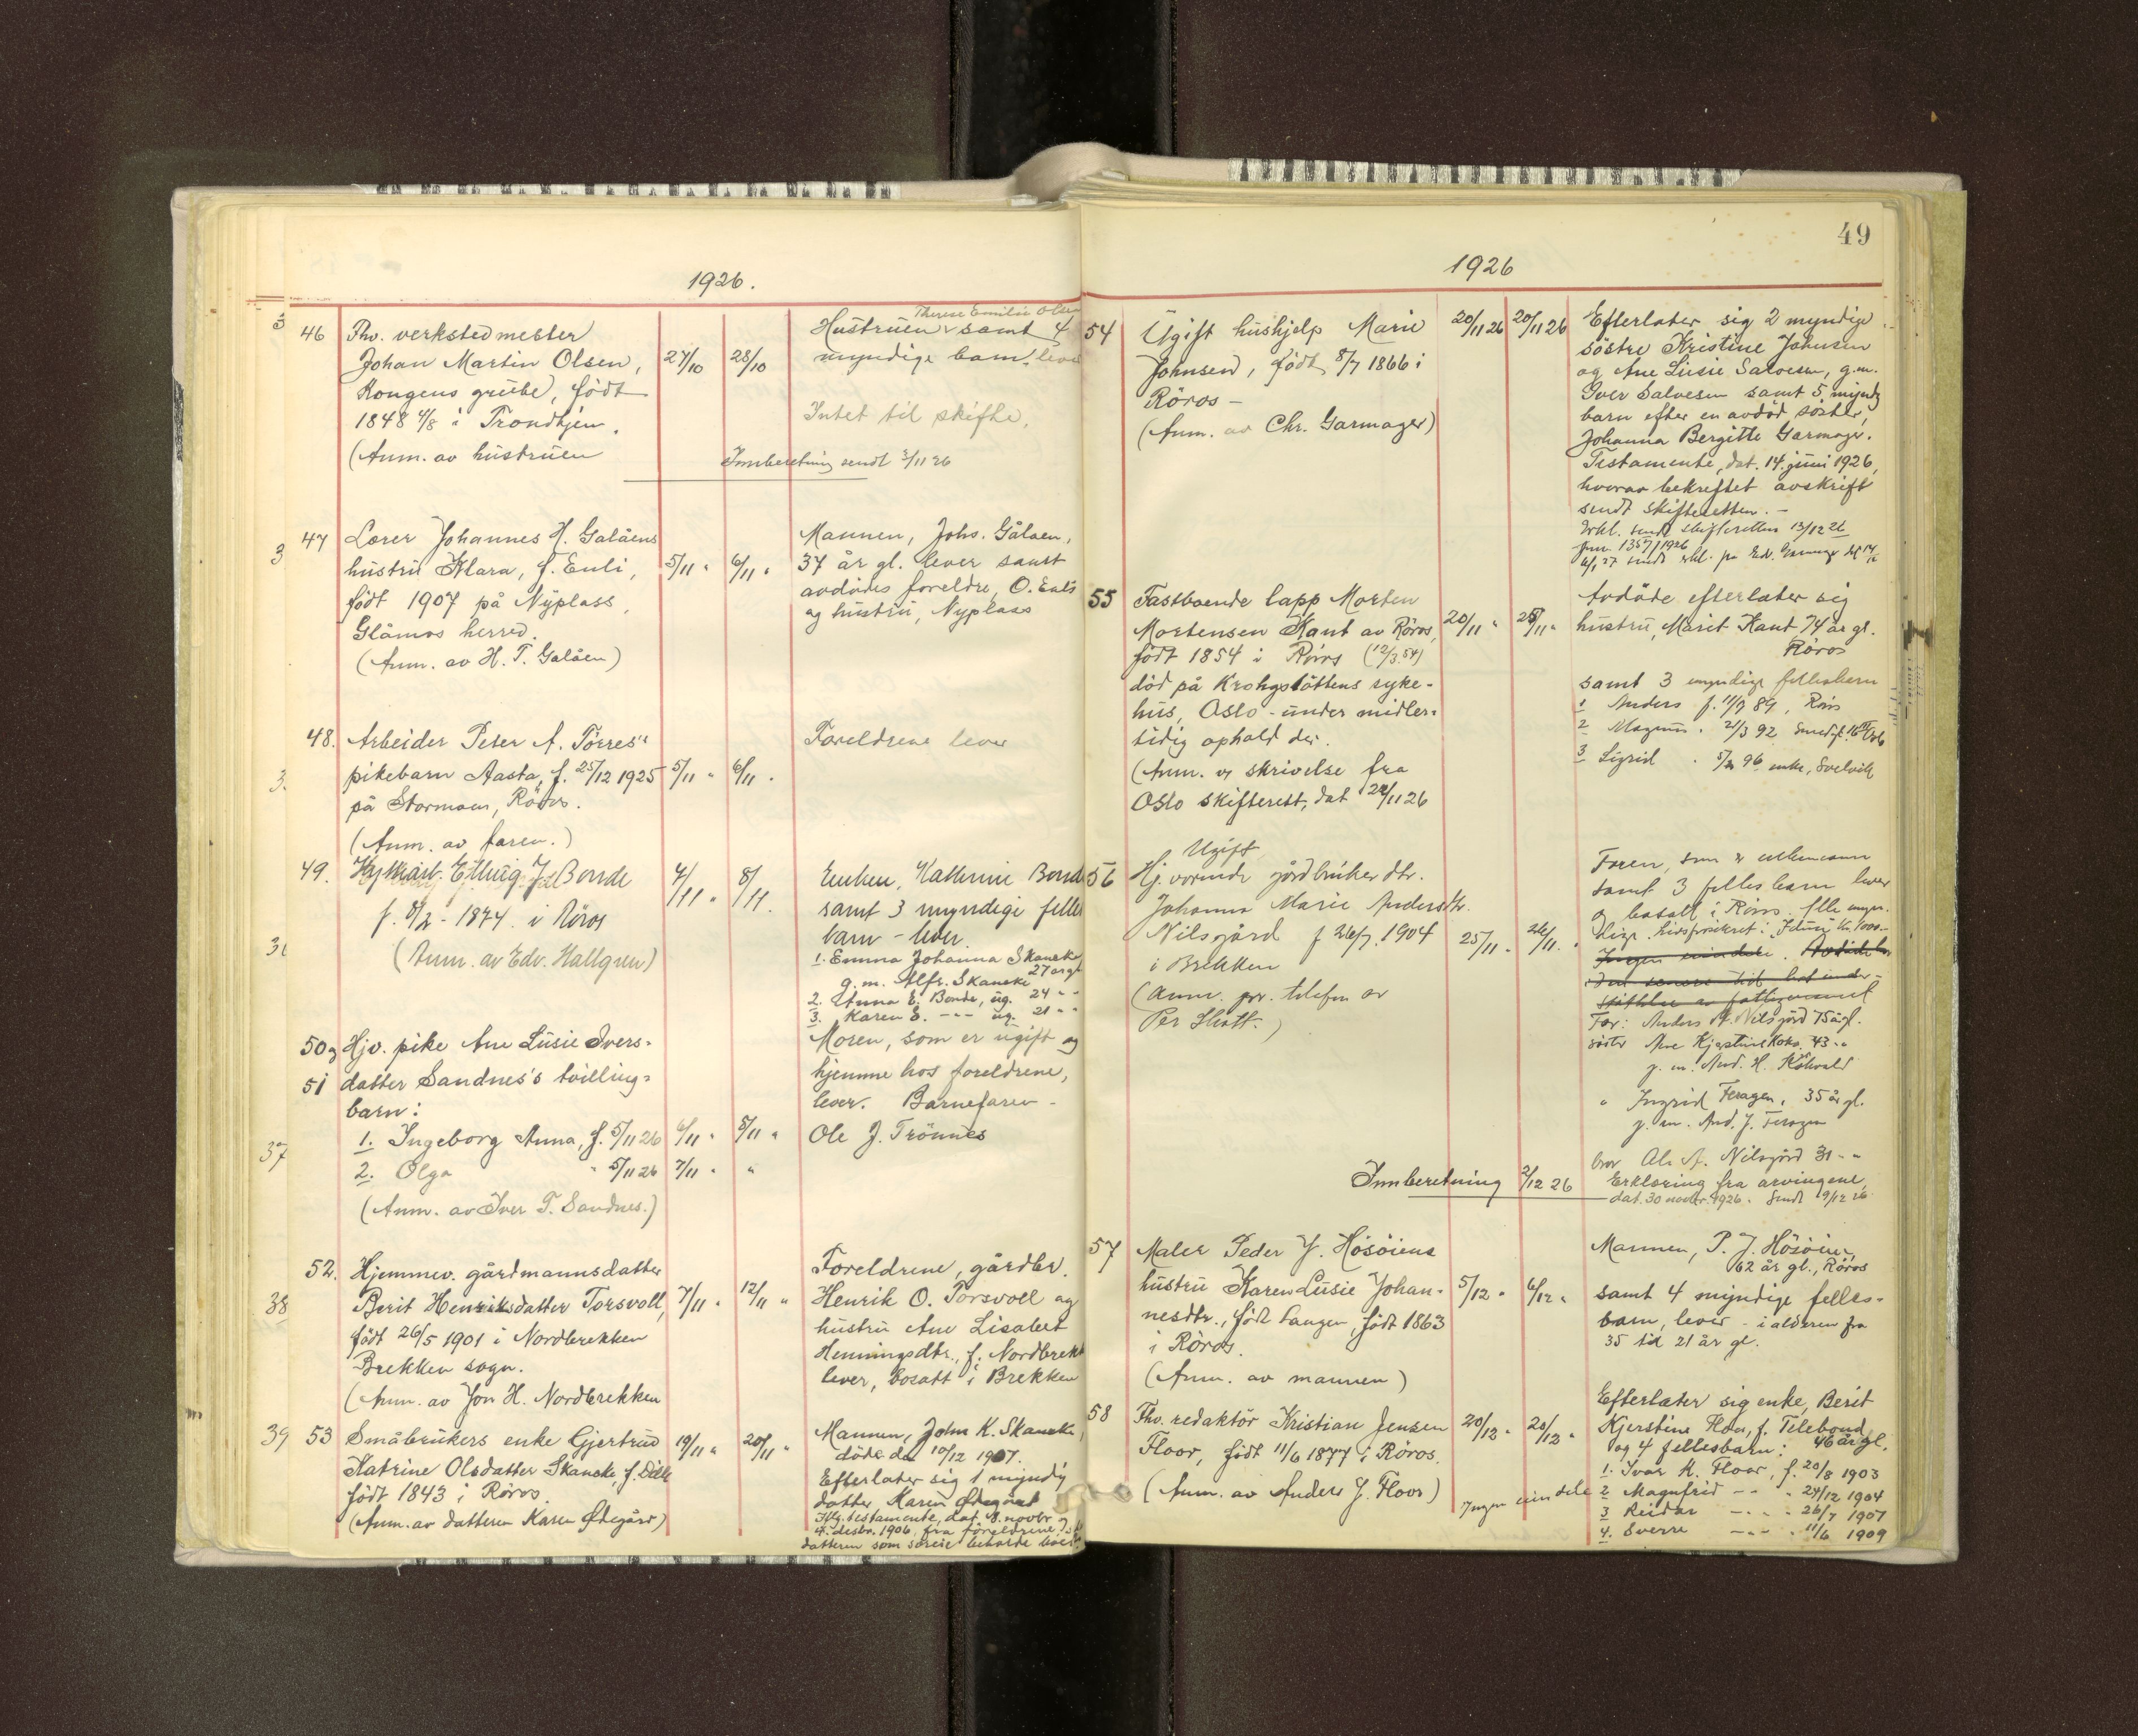 1926.
46 Fhv. verkstedmester
Johan Martin Olsen,
Kongens grube, født
1848 4/8 i Trondhjem.
(Anm. av hustruen
27/10 28/10
Therese Emilie Olsen
Hustruen samt 4
myndige barn lever
Intet til skifte.
Innberetning sendt 2/11 26
3
47 Lærer Johannes H. Galåens
hustru Klara, f. Enli,
født 1907 på Nyplass,
Glåmos herred.
(Anm. av H. T. Galåen)
5/11 " 6/11 "
Mannen, Johs. Gålaen,
37 år gl. lever samt
avdødes foreldre, O. Enli
og hustru, Nyplass
3
48. Arbeider Peter A. Tørres's
pikebarn Aasta, f. 25/12 1925
på Stormoen, Röros.
(Anm. av faren.)
5/11 " 6/11 "
Foreldrene lever
3
49. Elling J. Bonde
f. 8/2 - 1874 i Röros
(Anm. av Edv. Hallgren)
4/11 " 8/11 "
Enken, Kathrine Bonde
samt 3 myndige felles
barn - lever.
1. Emma Johanna Skancke
g. m. Alfr. Skancke 27 år gl
2. Anna E. Bonde, ug. 24 " "
3. Karen E. -"- ug. 21 " "
50 og Hjv. pike Ane Lusie Ivers-
51 datter Sandnes's tvilling-
barn:
1. Ingeborg Anna, f. 5/11 26 6/11 " 8/11 "
2. Olga " 5/11 26 7/11 " "
(Anm. av Iver T. Sandnes.)
Moren, som er ugift og
hjemme hos foreldrene,
lever. Barnefaren -
Ole J. Trönnes
37
52. Hjemmev. gårdmannsdatter
Berit Henriksdatter Torsvoll,
født 26/5 1901 i Nordbrekken
Brekken sogn.
(Anm. av Jon H. Nordbrekken
7/11 " 12/11 "
Foreldrene, gårdbr.
Henrik O. Torsvoll og
hustru Ane Lisabet
Henningsdtr., f. Nordbrekk
lever, bosatt i Brekken
38
39 53 Småbrukers enke Gjertrud
Katrine Olsdatter Skancke, f. Dille
født 1843 i Röros.
(Anm. av datteren Karen Ødegård)
19/11 " 20/11 "
Mannen, John K. Skancke,
døde den 10/12 1907.
Efterlater sig 1 myndig
datter, Karen Ødegård
Iflg. testamente, dat. 8. novbr og
4. desbr. 1906, fra foreldrene
datteren som
49
1926
54 Ugift hushjelp Marie
Johnsen, født 8/7 1866 i
Röros -
(Anm. av Chr. Garmager)
20/11 26 20/11 26
Efterlater sig 2 myndige
søstre Kristine Johnsen
og Ane Lusie Salvesen, g.m.
Iver Salvesen samt 5 myndg
barn efter en avdød søster,
Johanna Bergitte Garmager.
Testamente, dat. 14. juni 1926,
hvorav bekreftet avskrift
sendt skifteretten. -
sendt skifteretten 13/12 26
Jnr. 1357/1926
55 Fastboende lapp Morten
Mortensen Kant av Röros,
født 1854 i Röros (12/3.54)
död på Krohgstöttens syke-
hus, Oslo - under midler-
tidig ophold der.
(Anm. v. skrivelse fra
Oslo skifterett, dat 22/11 26
20/11 " 25/11 "
Avdöde efterlater sig
hustru, Marit Kant, 74 år gl.
Röros
samt 3 myndige fellesbarn
1 Anders f. 11/7 89, Röros
2 Magnus " 21/3 92
3 Sigrid " 96 enke, Svelvik
56 Ugift
Hj. værende gårdbruker dtr.
Johanna Marie Andersdtr.
Nilsgård f 26/7. 1904
i Brekken
(Anm. pr. telefon av
Per Skott.)
25/11 " 26/11 "
Faren, som er enkemann
samt 3 felles barn lever
og bosatt i Röros. Alle myn-
dige.
Far: Anders A. Nilsgård 75 år gl.
søster Ane Kjerstine 43 "
g. m. And. H.
" Ingrid Feragen, 35 år gl.
g. m. And. J. Feragen
bror Ole A. Nilsgård 31 - "
Innberetning 2/12 26
Erklæring fra arvingene,
dat. 30 novbr. 1926. Sendt 9/12 26
57 Maler Peder J. Hösöiens
hustru Karen Lusie Johan-
nesdtr., född Langen, født 1863
i Röros.
(Anm. av mannen)
5/12 " 6/12 "
Mannen, P. J. Hösöien,
62 år gl., Röros
samt 4 myndige felles-
barn, lever - i alderen fra
35 til 21 år gl.
58 Fhv. redaktör Kristian Jensen
Floor, født 11/6 1877 i Röros.
(Anm. av Anders J. Floor)
20/12 " 20/12 "
Ingen
Efterlater sig enke, Berit
Kjerstine Floor, f. Tilebond,
og 4 fellesbarn: 46 år gl.
1. Ivar K. Floor, f. 20/8 1903
2 Magnfrid -"- " 24/12 1904
3 Reidar -"- " 26/7 1907
4. Sverre -"- " 11/6 1909